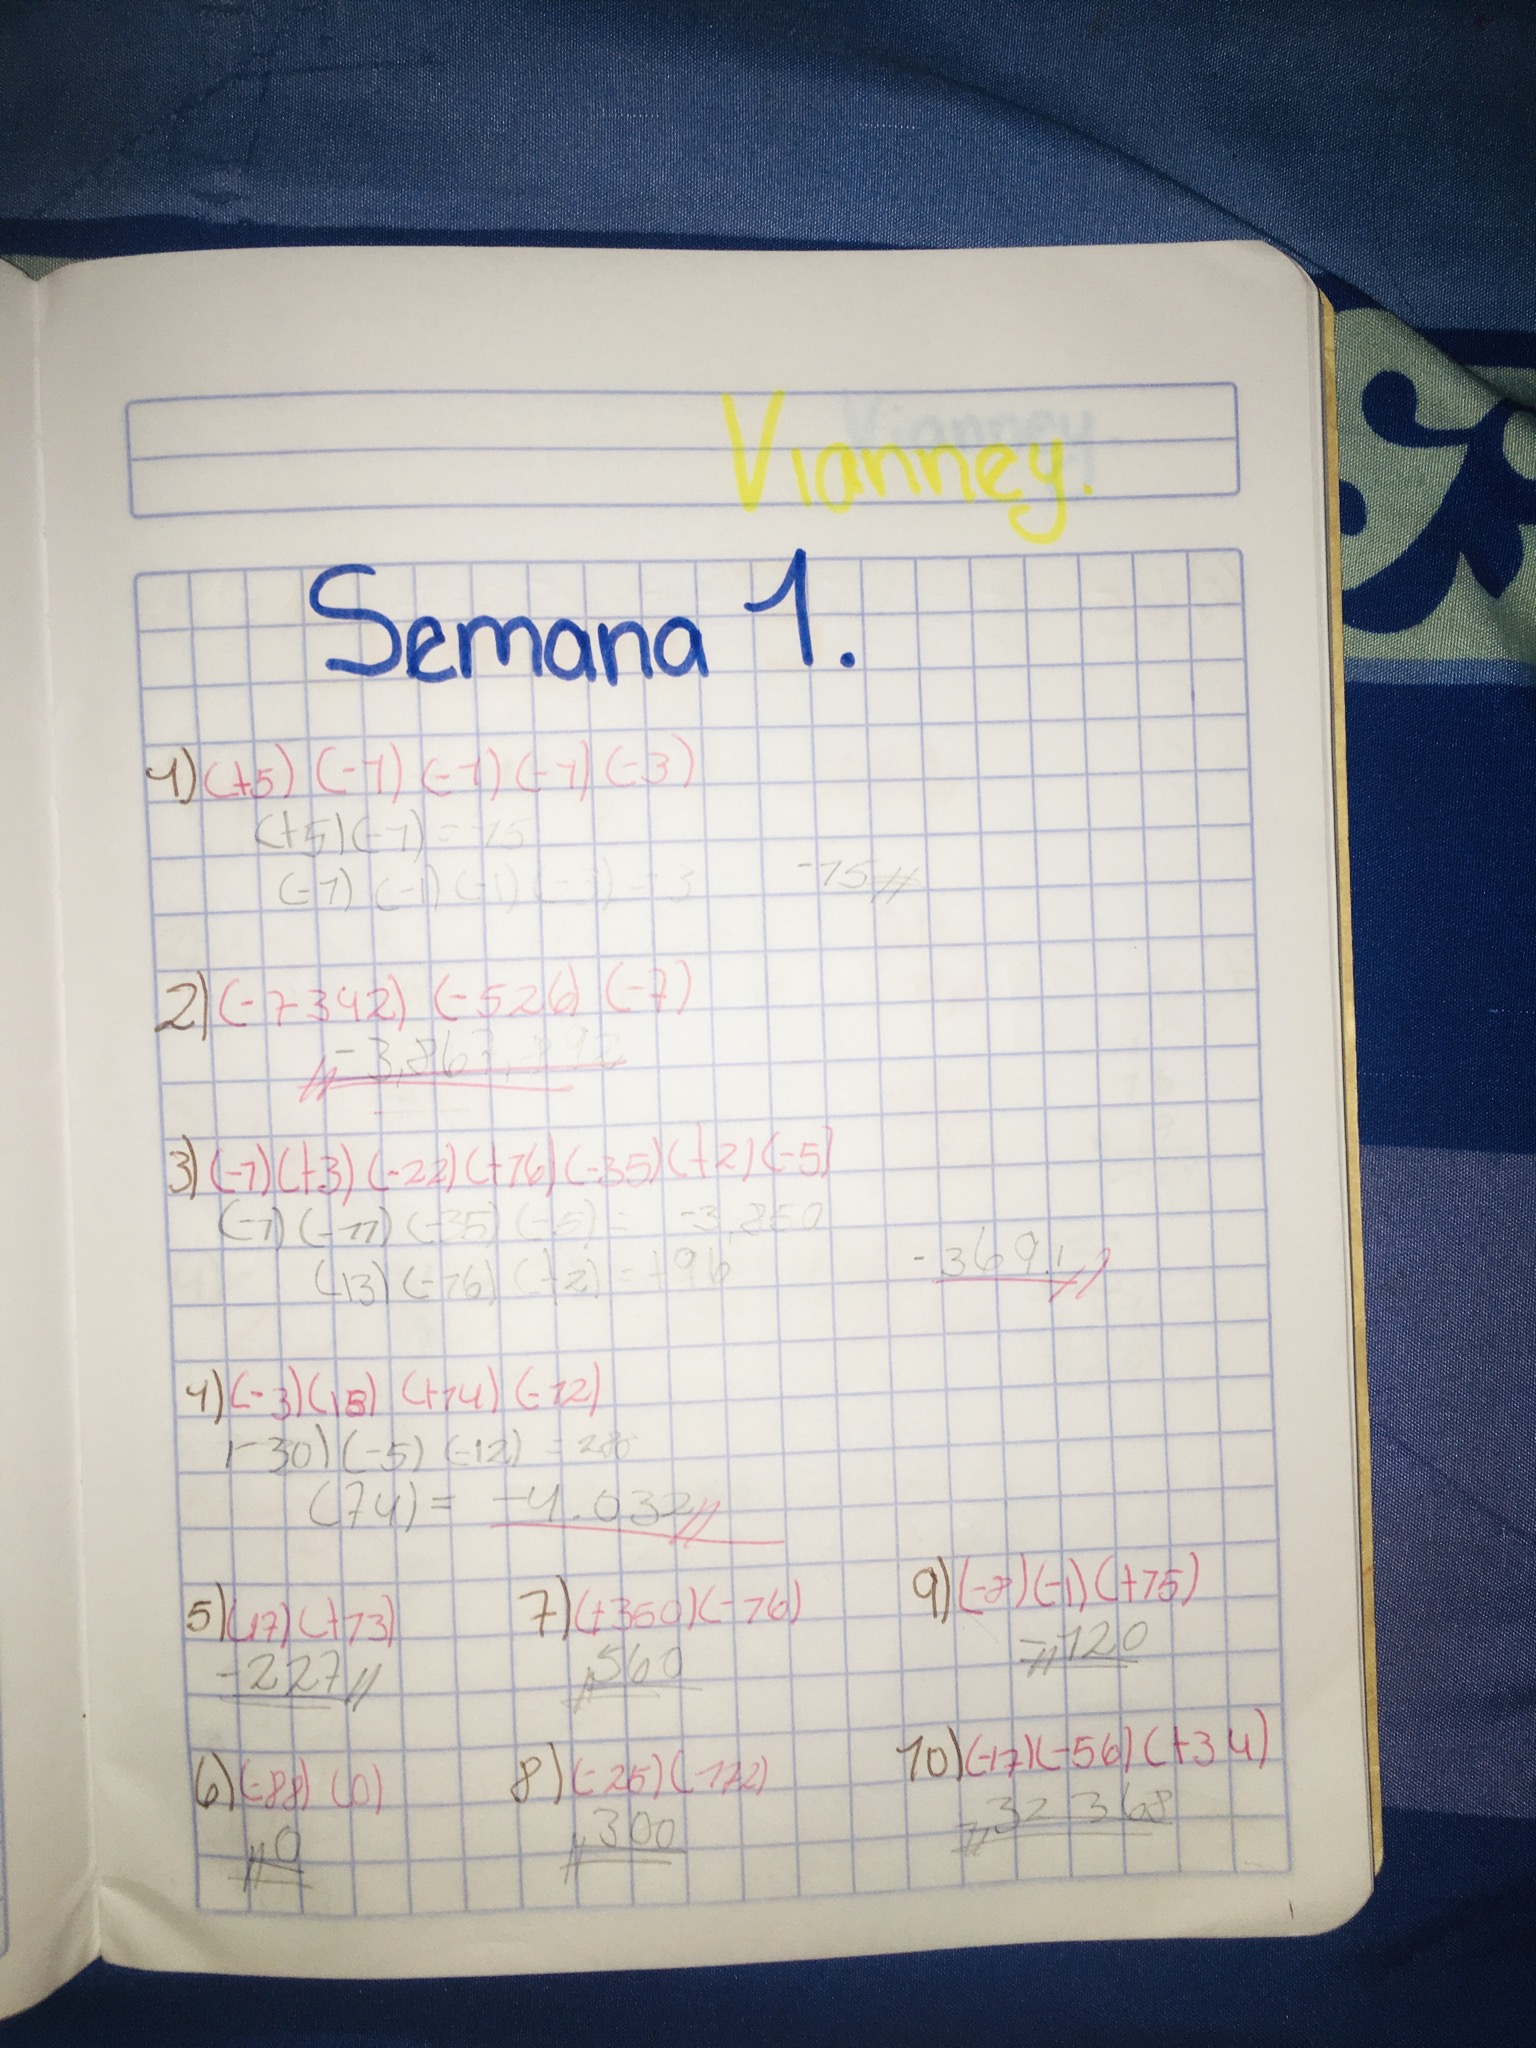 Vianney.
Semana 1.
1) (+5) (-1) (-1) (-1) (-3)
(+5)(-1) = 15
(-1) (-1) (-1) (-3) = 3 -15
2) (-7342) (-526) (-1)
3) (-1)(+3)(-22)(+16)(-35)(+2)(-5)
(-1) (-11) (-35) (-5) = -3,850
(13) (-16) (+2) = +96 -3691
4) (-3)(15) (+14) (-12)
(-30) (-5) (-12) =
(14) = -4.032
5) (17) (+13) 7) (+350)(-16) 9) (-8)(-1)(+15)
-227 560 -120
6) (-88) (0) 8) (-25)(-112) 10) (-17)(-56)(+34)
0 300 32 368